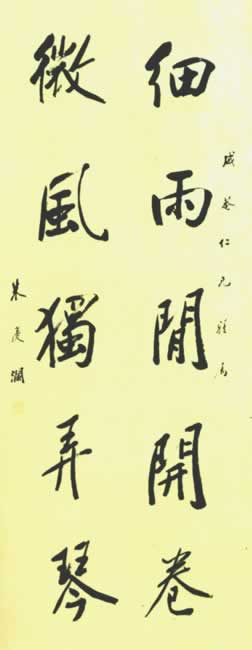 仁兄雅屬
細雨閒開卷
微風獨弄琴
朱慶瀾